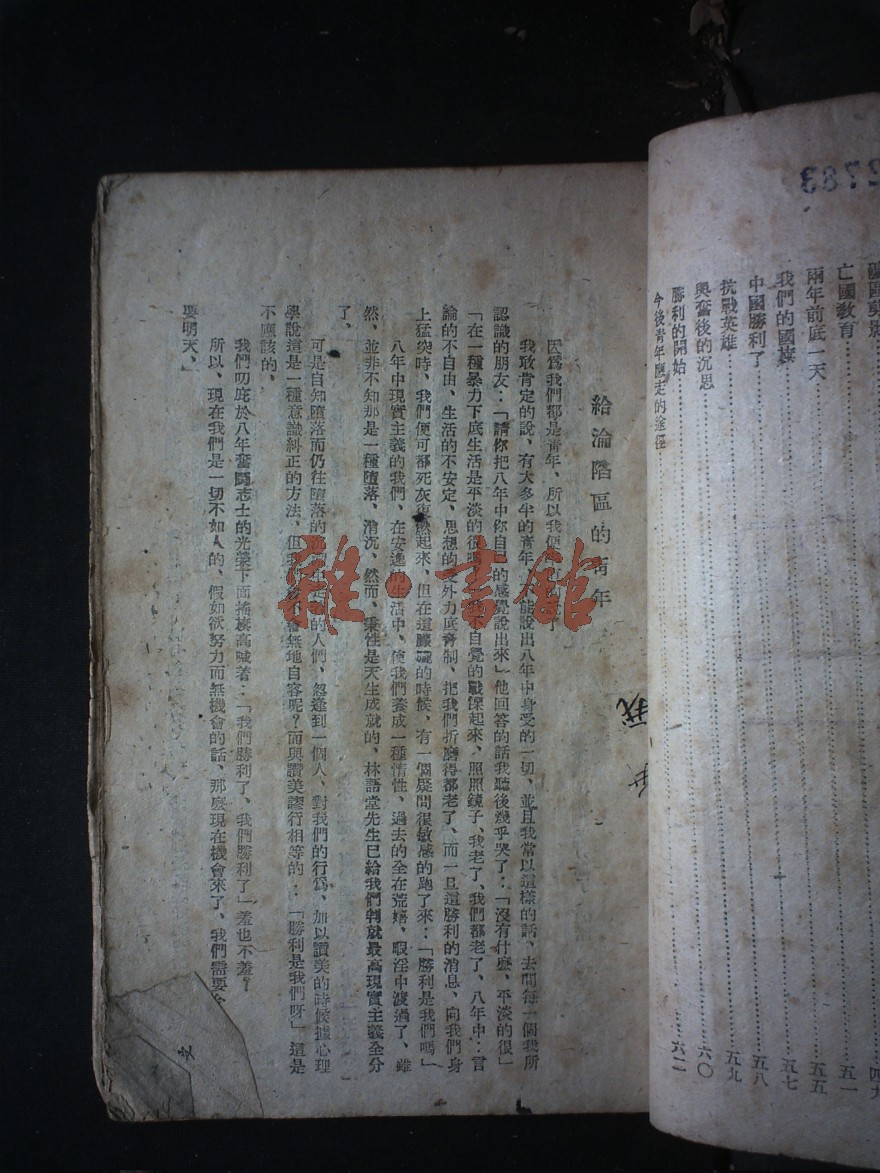 2783
亡國教育 五一
兩年前底一天 五五
我們的國旗 五七
中國勝利了 五八
抗戰英雄 五九
興奮後的沉思 六〇
勝利的開始 六二
今後青年應走的途徑
我
給淪陷區的青年
因爲我們都是青年、所以我便
我敢肯定的說、有大多半的青年、 能說出八年中身受的一切、並且我常以這樣的話、去問每一個我所
認識的朋友：「請你把八年中你自 的感覺說出來」他回答的話我聽後幾乎哭了：「沒有什麽、平淡的很」
「在一種暴力下底生活是平淡的很 我不自覺的戰慄起來、照照鏡子、我老了、我們都老了、八年中：言
論的不自由、生活的不安定、思想的受外力底脅制、把我們折磨得都老了、而一旦這勝利的消息、向我們身
上猛突時、我們便可都死灰復燃起來、但在這朦朧的時候、有一個疑問很敏感的跑了來：「勝利是我們嗎」
八年中現實主義的我們、在安逸的生活中、使我們養成一種惰性、過去的全在荒嬉、暇淫中渡過了、雖
然、並非不知那是一種墮落、消沉、然而、秉性是天生成就的、林語堂先生已給我們判就最高現實主義全分
了、
可是自知墮落而仍往墮落的 的人們、忽逢到一個人、對我們的行爲、加以讚美的時候據心理
學說這是一種意識糾正的方法、但我 會無地自容呢？而與讚美謬行相等的：「勝利是我們呀」這是
不應該的、
我們叨庇於八年奮鬪志士的光榮下面搖旗高喊著：「我們勝利了、我們勝利了」羞也不羞？
所以、現在我們是一切不如人的、假如欲努力而無機會的話、那麽現在機會來了、我們需要
要明天、」
雜·書館